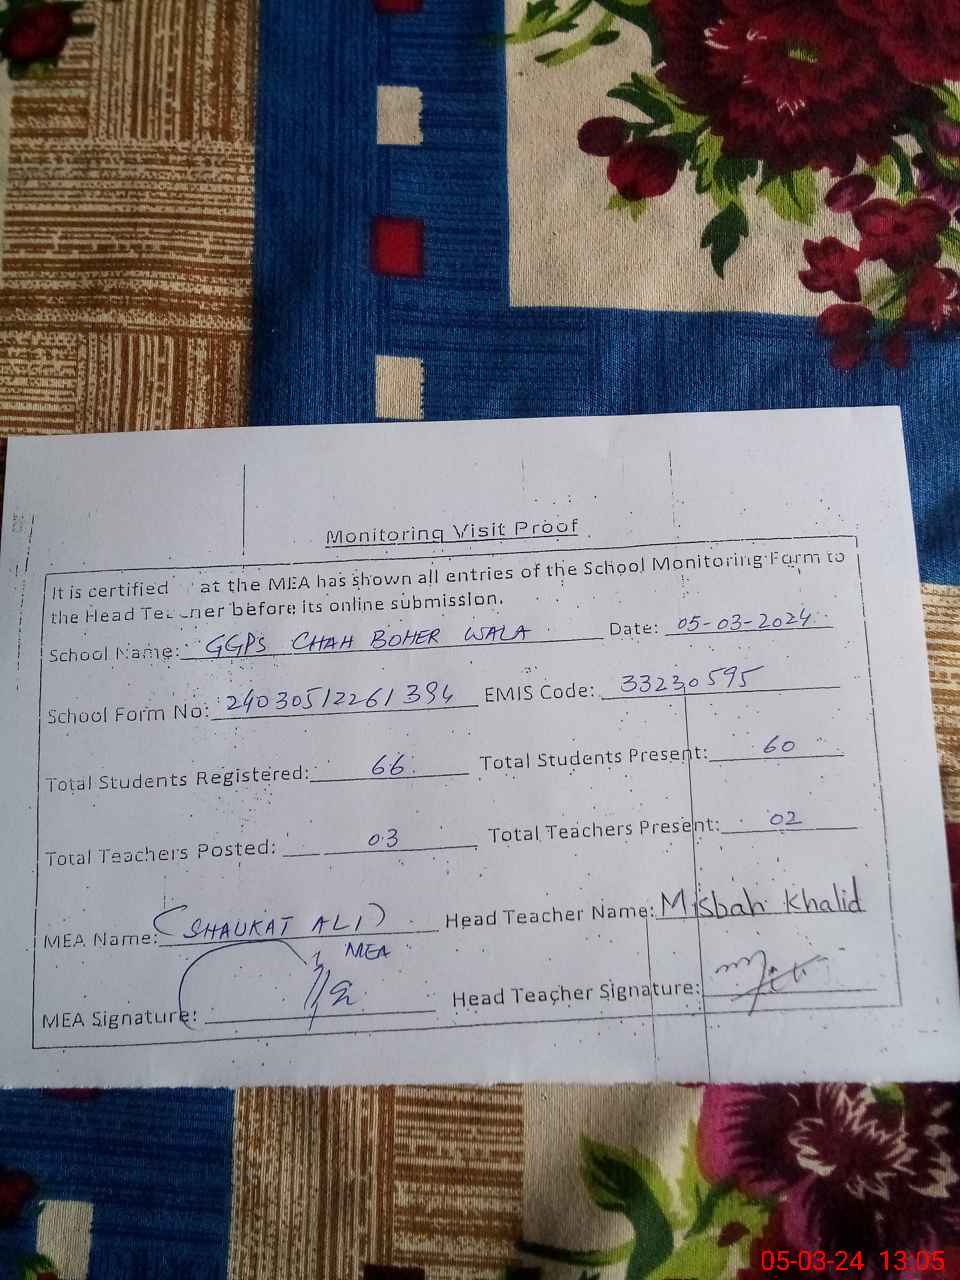 Monitoring Visit Proof
It is certified at the MEA has shown all entries of the School Monitoring Form to
the Head Teacher before its online submission.
School Name: GGPS CHAH BOHER WALA Date: 05-03-2024
School Form No: 24030512261394 EMIS Code: 33230595
Total Students Registered: 66 Total Students Present: 60
Total Teachers Posted: 03 Total Teachers Present: 02
MEA Name: (SHAUKAT ALI) Head Teacher Name: Misbah Khalid
MEA
MEA Signature: Head Teacher Signature:
05-03-24 13:05